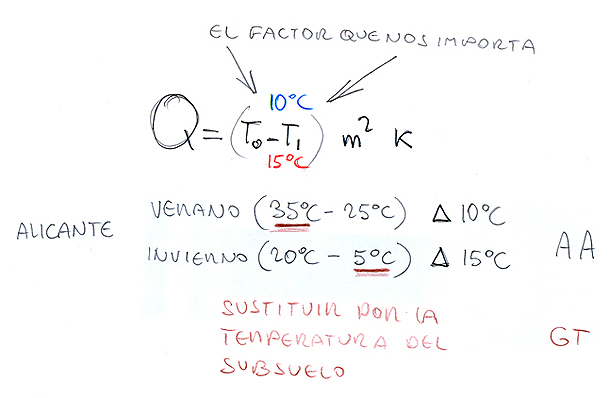 EL FACTOR QUE NOS IMPORTA
10°C
Q = (T₀ - T₁) m² K
15°C
ALICANTE
VERANO (35°C - 25°C) Δ 10°C
INVIERNO (20°C - 5°C) Δ 15°C
AA
SUSTITUIR POR LA
TEMPERATURA DEL
SUBSUELO
GT